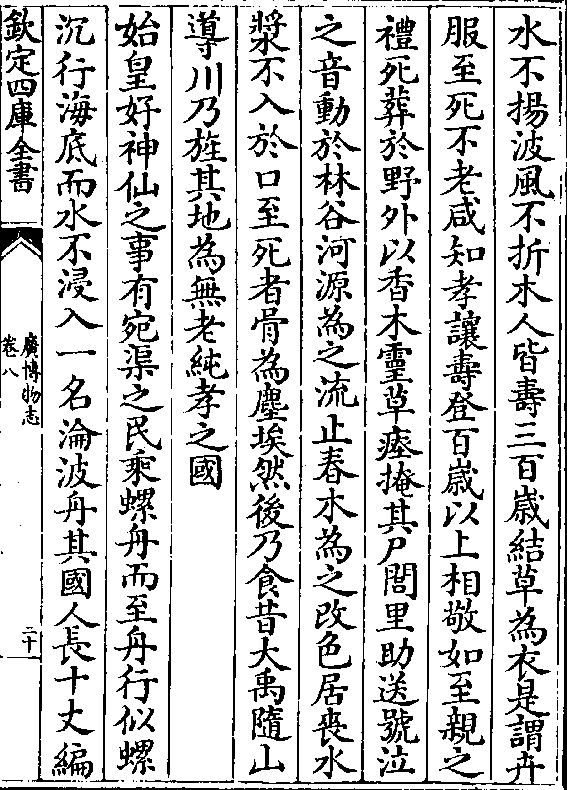 水不揚波風不折木人皆壽三百歳結草為衣是謂卉
服至死不老咸知孝讓壽登百歳以上相敬如至親之
禮死葬於野外以香木靈草瘞掩其尸閭里助送號泣
之音動於林谷河源為之流止春木為之改色居喪水
漿不入於口至死者骨為塵埃然後乃食昔大禹隨山
導川乃旌其地為無老純孝之國
始皇好神仙之事有宛渠之民乗螺舟而至舟行似螺
沉行海底而水不浸入一名淪波舟其國人長十丈編
欽定四庫全書
廣博物志
卷八
二十